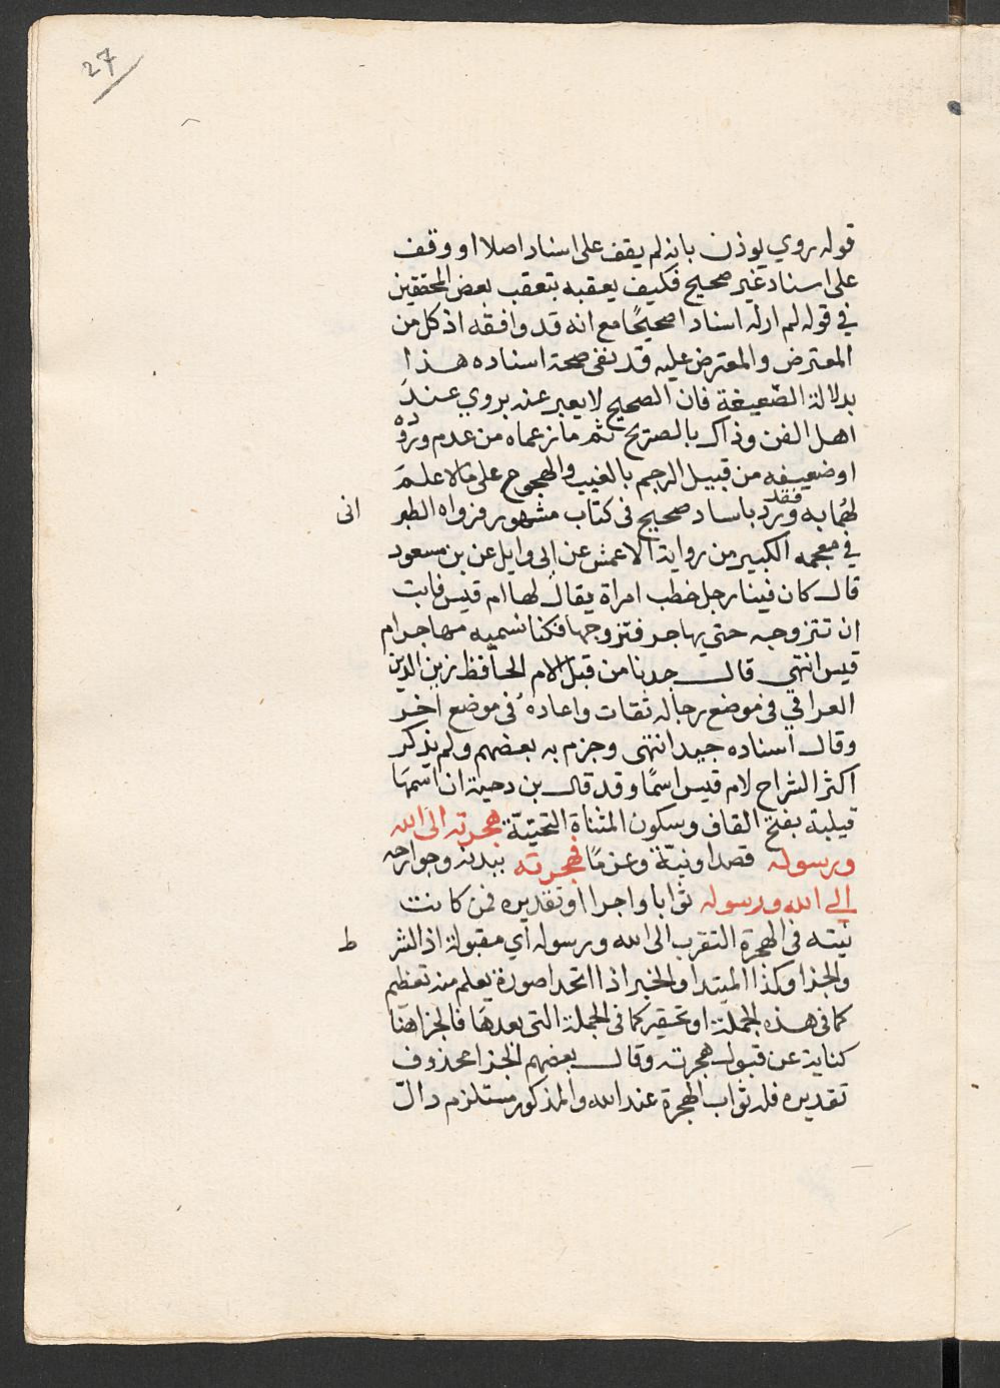 27
قوله روي يوذن بانه لم يقف على اسناد اصلا او وقف
على اسناد غير صحيح فكيف يعقبه بتعقب بعض المحققين
في قوله لم ار له اسنادا صحيحًا مع انه قد وافقه اذ كل من
المعترض والمعترض عليه قد نفى صحة اسناده هذا
بدلالة الصّيغة فان الصحيح لا يعبر عنه بروي عند
اهل الفن وذاك بالصريح ثم ما زعماه من عدم وروده
او ضعيفه من قبيل الرجم بالغيب والهجوم على ما لا علم
لهُما به فقد ورد باسناد صحيح في كتاب مشهور فرواه الطبر
انى
في معجمه الكبير من رواية الاعمش عن ابي وايل عن بن مسعود
قال كان فينا رجل خطب امراة يقال لها ام قيس فابت
ان تتزوجه حتي يهاجر فتزوجها فكنا نسميه مهاجر ام
قيس انتهي قال جدنا من قبل الام الحافظ زين الدين
العراقي في موضع رجاله ثقات واعادهُ في موضع اخر
وقال اسناده جيد انتهى وجزم به بعضهم ولم يذكر
اكثر الشراح لام قيس اسمًا وقد قال بن دحية ان اسمهَا
قيلبة بفتح القاف وسكون المثناة التحتيّة هجرته الى الله
ورسوله قصدا ونيّة وعزمًا فهجرته ببدنه وجوارحه
الي الله ورسوله ثوابا واجرا او تقديره فمن كانت
نيته في الهجرة التقرب الى الله ورسوله اي مقبولة اذ الشر
ط
والجزا وكذا المبتدا والخبر اذا اتحدا صورة يعلم منه تعظيم
كما في هذه الجملة او تحقير كما في الجملة التي بعدهَا فالجزا هنا
كناية عن قبول هجرته وقال بعضهم الجزا محذوف
تقديره فله ثواب الهجرة عند الله والمذكور مستلزم دالّ